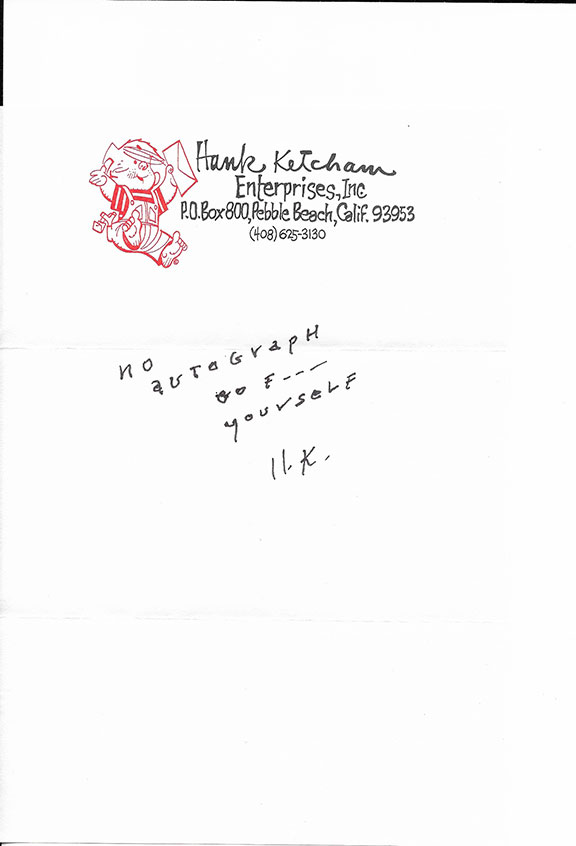 Hank Ketcham
Enterprises, Inc
P.O. Box 800, Pebble Beach, Calif. 93953
(408) 625-3130
NO
AUTOGRAPH
GO F---
YOURSELF
H.K.